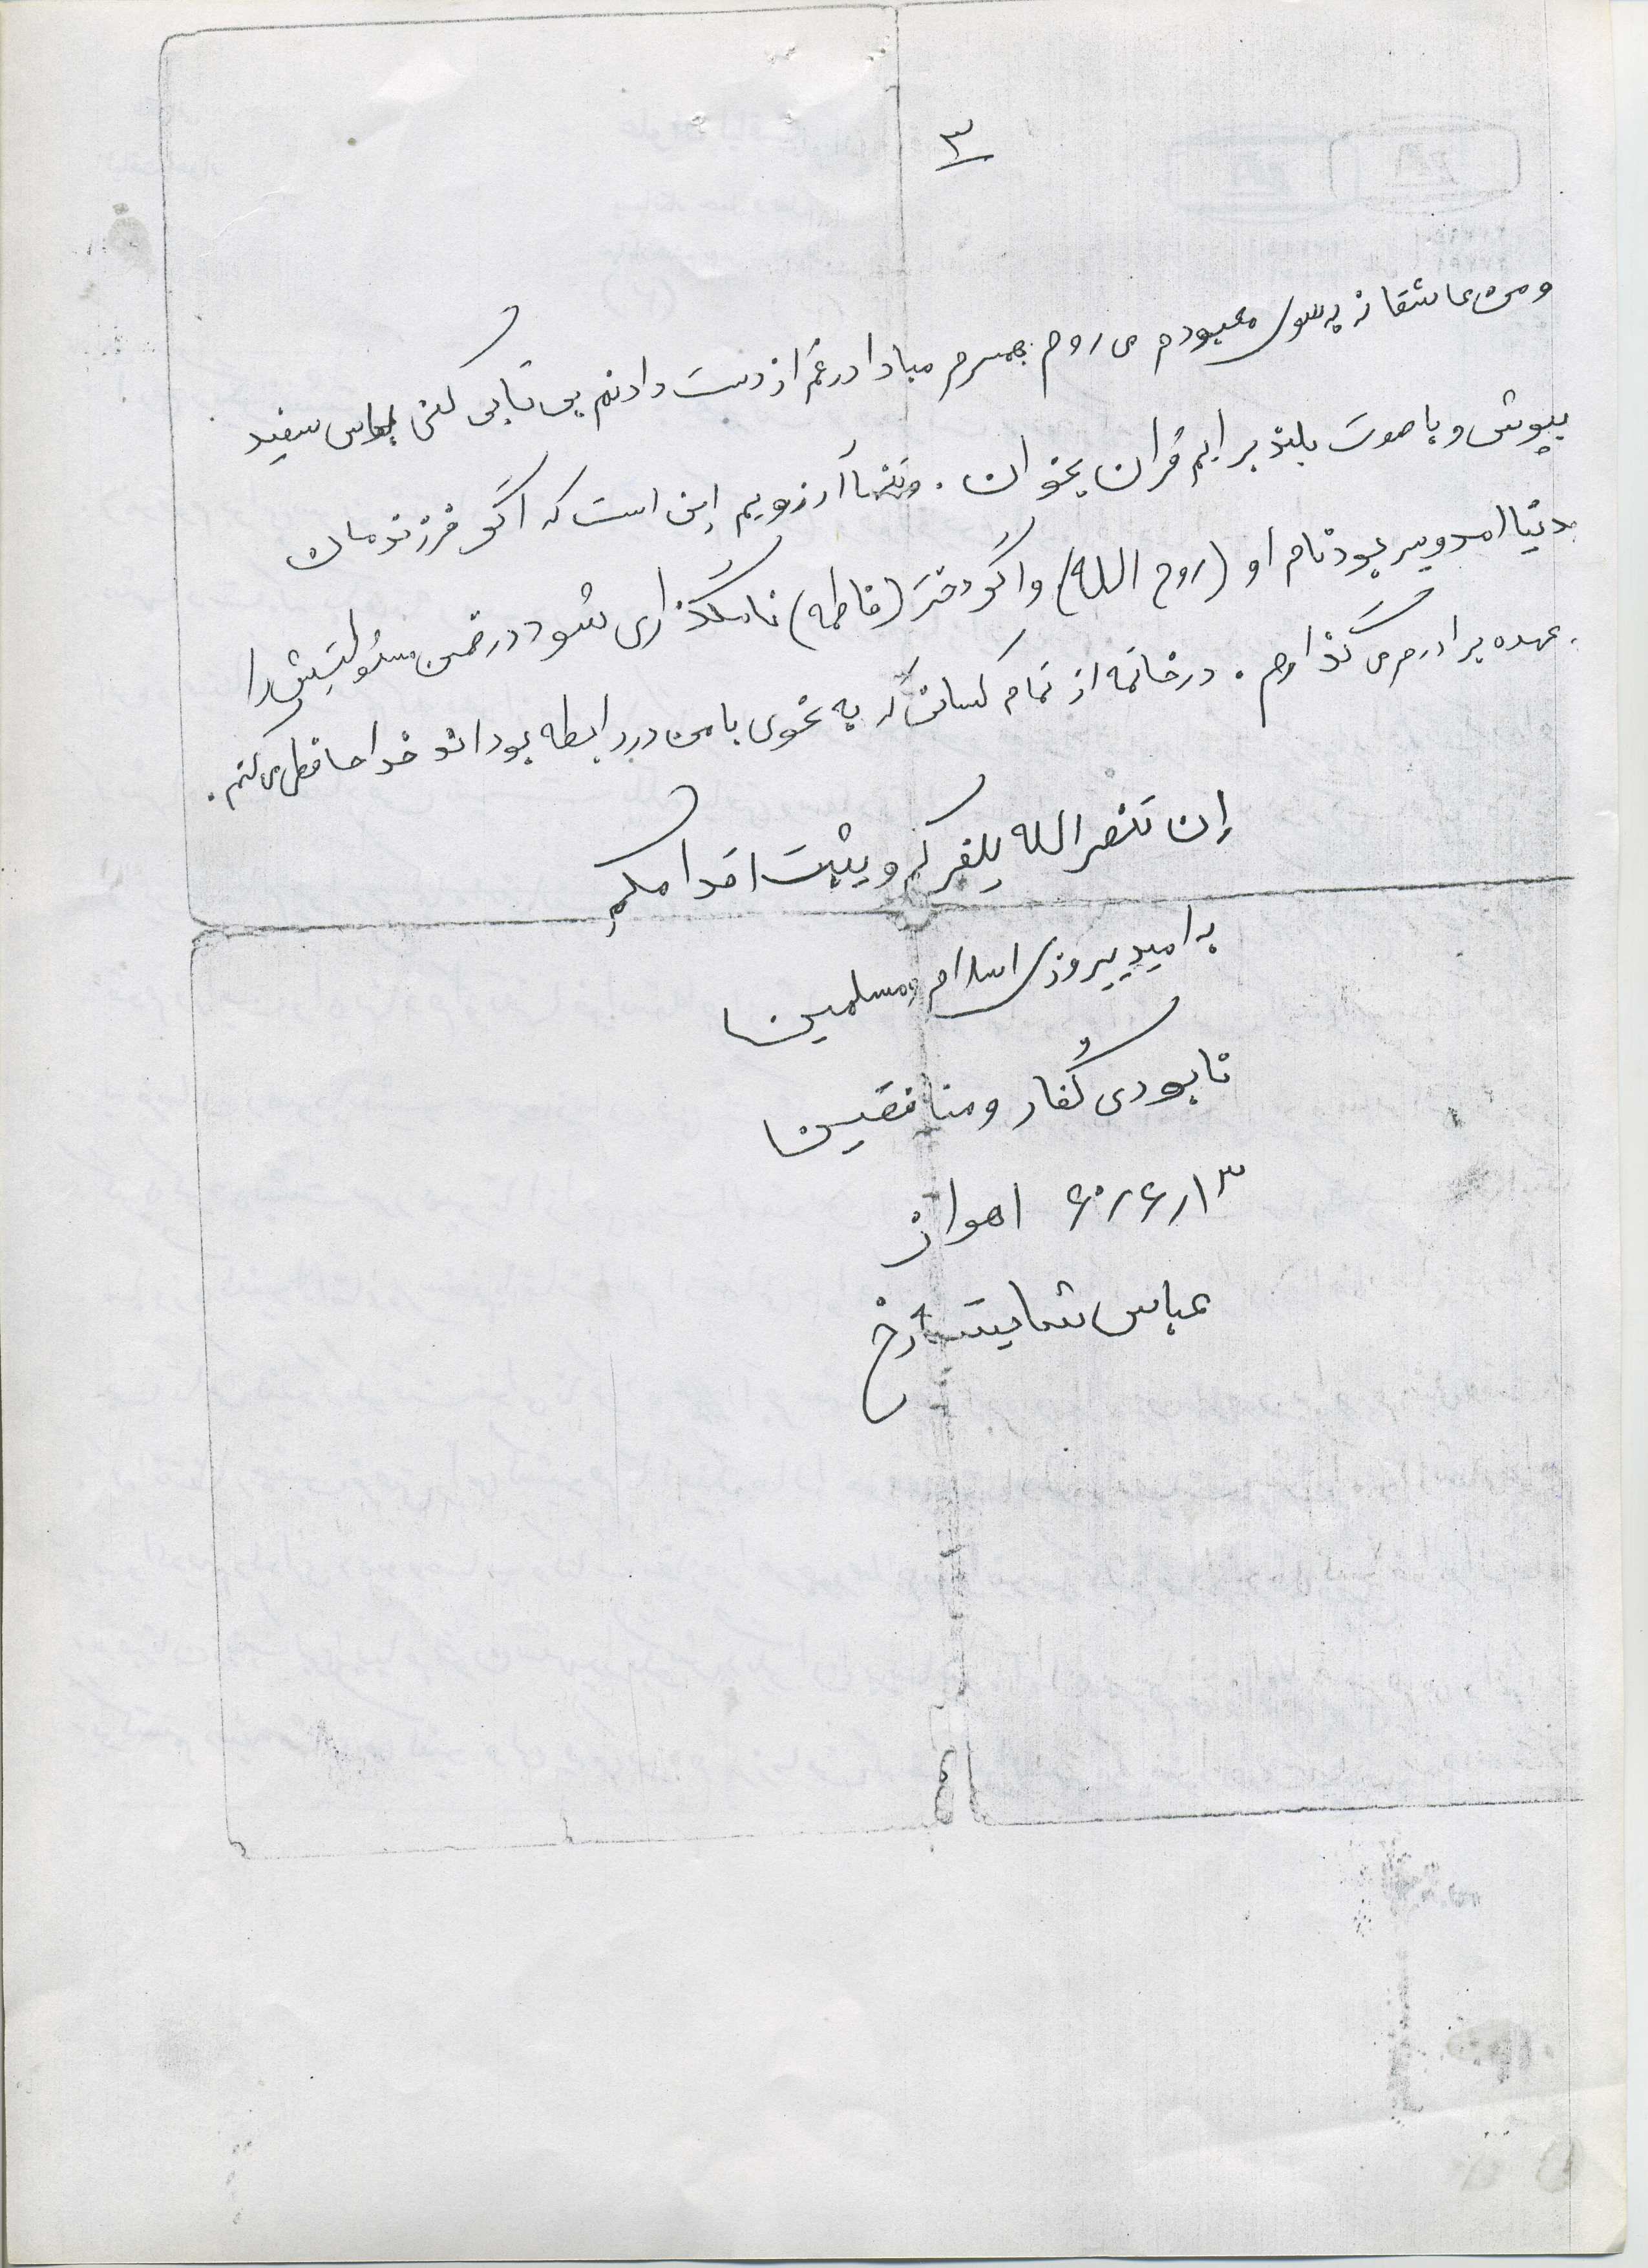 ۳
و من عاشقانه به سوی معبودم می روم همسرم مبادا در غم از دست دادنم بی تابی کنی لباس سفید
بپوش و با صوت بلند برایم قران بخوان . و تنها آرزویم این است که اگر فرزندمان
بدنیا امد و پسر بود نام او (روح الله) و اگر دختر (فاطمه) نامگذاری شود در ضمن مسئولیتش را
بعهده برادرم می گذارم . در خاتمه از تمام کسانی که به نحوی با من در رابطه بوداند خداحافظی می کنم .
إن تنصر الله ینصرکم و یثبت اقدامکم
به امید پیروزی اسلام و مسلمین
نابودی کفار و منافقین
۶۰/۶/۱۳ اهواز
عباس شایسته رخ